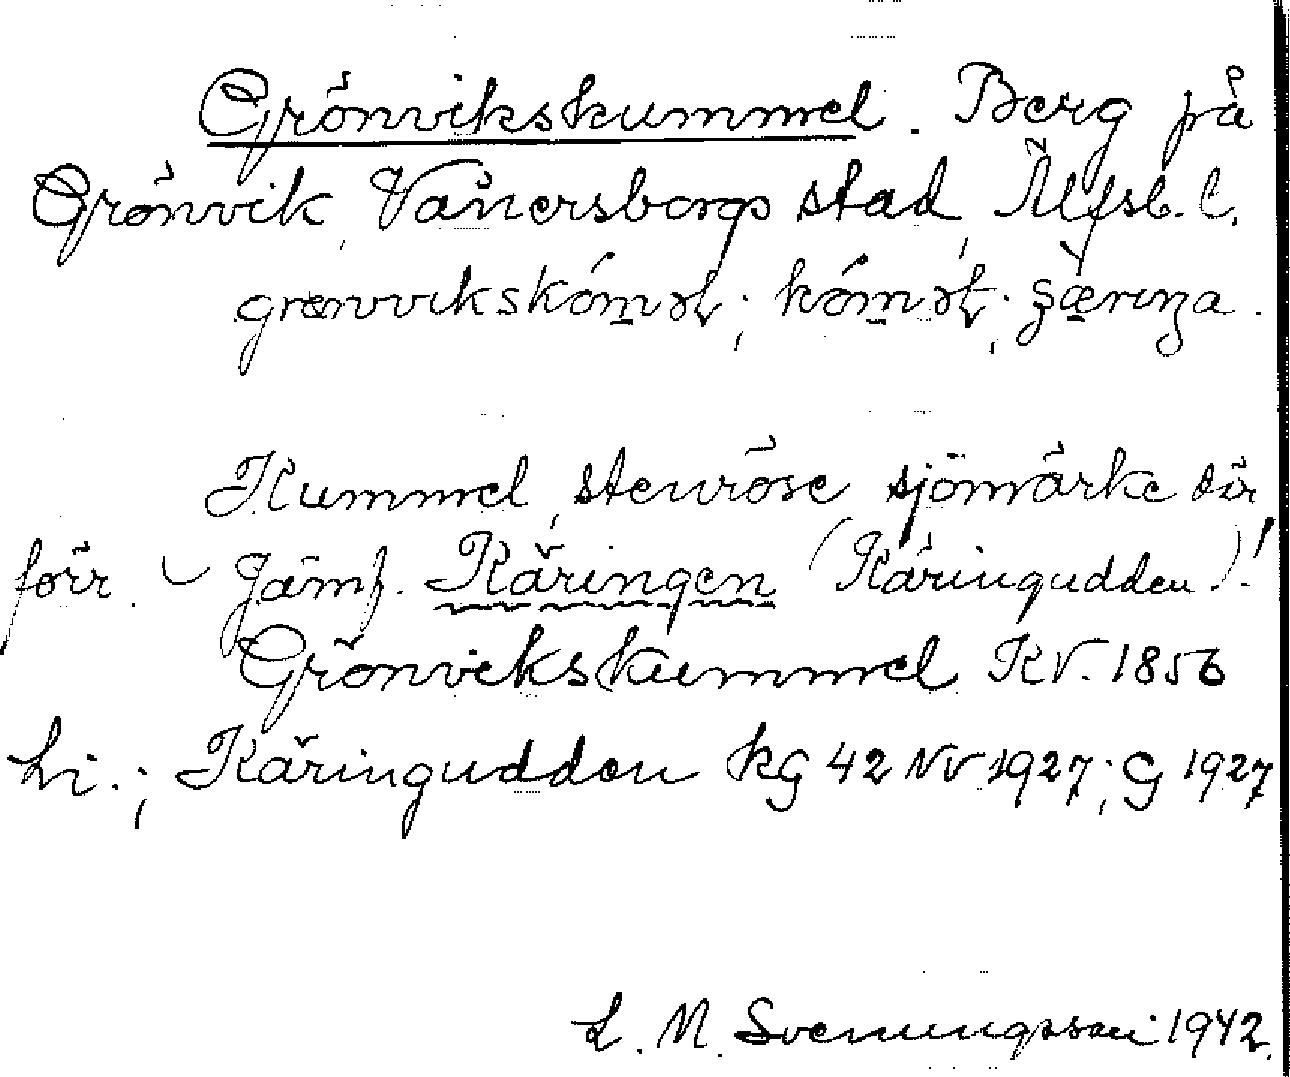 Grönvikskummel. Berg på
Grönvik, Vänersborgs stad, Älfsb. l.
Kummel, stenröse, sjömärke där
förr. Jämf. Käringen (Käringudden)!
Grönvikskummel KV. 1856
hi.; Käringudden kG 42 NV 1927; G 1927
L. M. Svenungsson 1942.